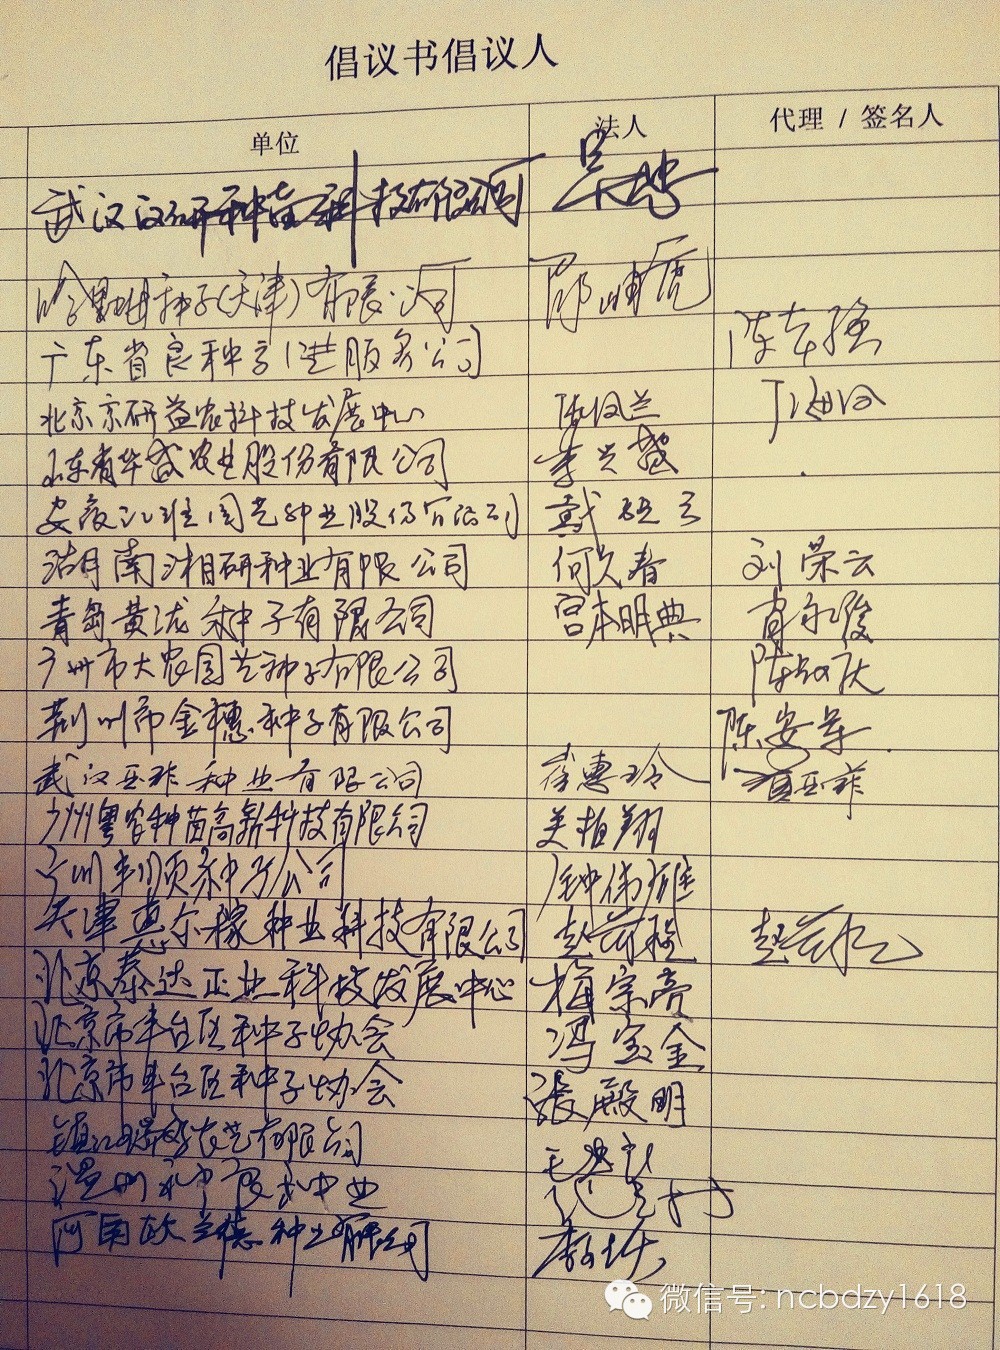 倡议书倡议人
单位 法人 代理 / 签名人
武汉汉研种苗科技有限公司
种子(天津)有限公司
广东省良种引进服务公司
北京京研益农科技发展中心
山东省华盛农业股份有限公司 李兴盛
安徽江淮园艺种业股份有限公司 戴祖云
湖南湘研种业有限公司 何久春 刘荣云
青岛黄泷种子有限公司 宫本明典 肖永俊
广州市大农园艺种子有限公司
荆州市金穗种子有限公司 陈安革
武汉亚非种业有限公司 崔惠玲 亚菲
广州粤农种苗高新科技有限公司 关柏翔
广州 种子公司 钟伟雄
天津惠尔稼种业科技有限公司
北京泰达正业科技发展中心 梅宗亮
北京市丰台区种子协会 冯宝金
北京市丰台区种子协会 张殿明
镇江 农艺有限公司
温州 种业
河南欧兰德种业有限公司
微信号: ncbdzy1618